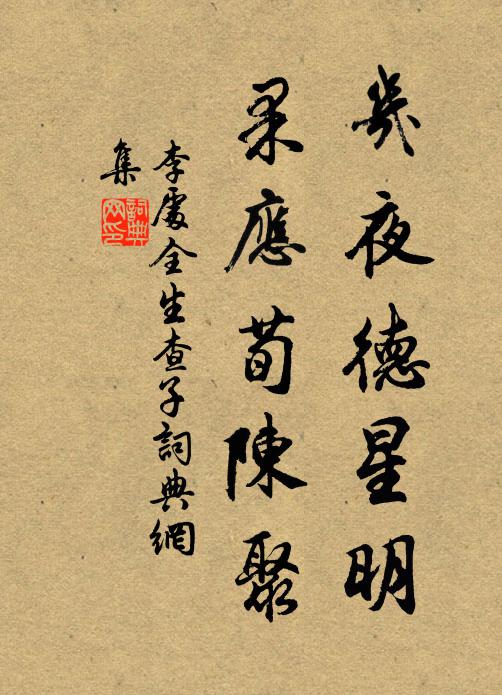 幾夜德星明
果應荀陳聚
李處全生查子詞典網
集
詞典網印